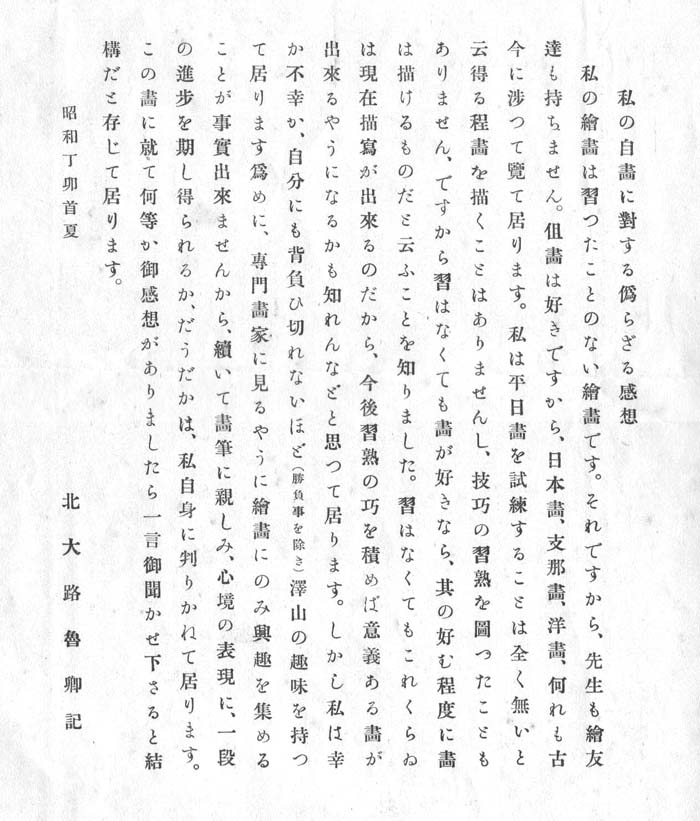 私の自畫に對する僞らざる感想
私の繪畫は習つたことのない繪畫です。それですから、先生も繪友
達も持ちません。伹畫は好きですから、日本畫、支那畫、洋畫、何れも古
今に涉つて覽て居ります。私は平日畫を試練することは全く無いと
云得る程畫を描くことはありませんし、技巧の習熟を圖つたことも
ありません、ですから習はなくても畫が好きなら、其の好む程度に畫
は描けるものだと云ふことを知りました。習はなくてもこれくらゐ
は現在描寫が出來るのだから、今後習熟の巧を積めば意義ある畫が
出來るやうになるかも知れんなどと思つて居ります。しかし私は幸
か不幸か、自分にも背負ひ切れないほど(勝負事を除き)澤山の趣味を持つ
て居ります爲めに、專門畫家に見るやうに繪畫にのみ興趣を集める
ことが事實出來ませんから、續いて畫筆に親しみ、心境の表現に、一段
の進步を期し得られるか、だうだかは、私自身に判りかねて居ります。
この畫に就て何等か御感想がありましたら一言御聞かせ下さると結
構だと存じて居ります。
昭和丁卯首夏
北大路魯卿記